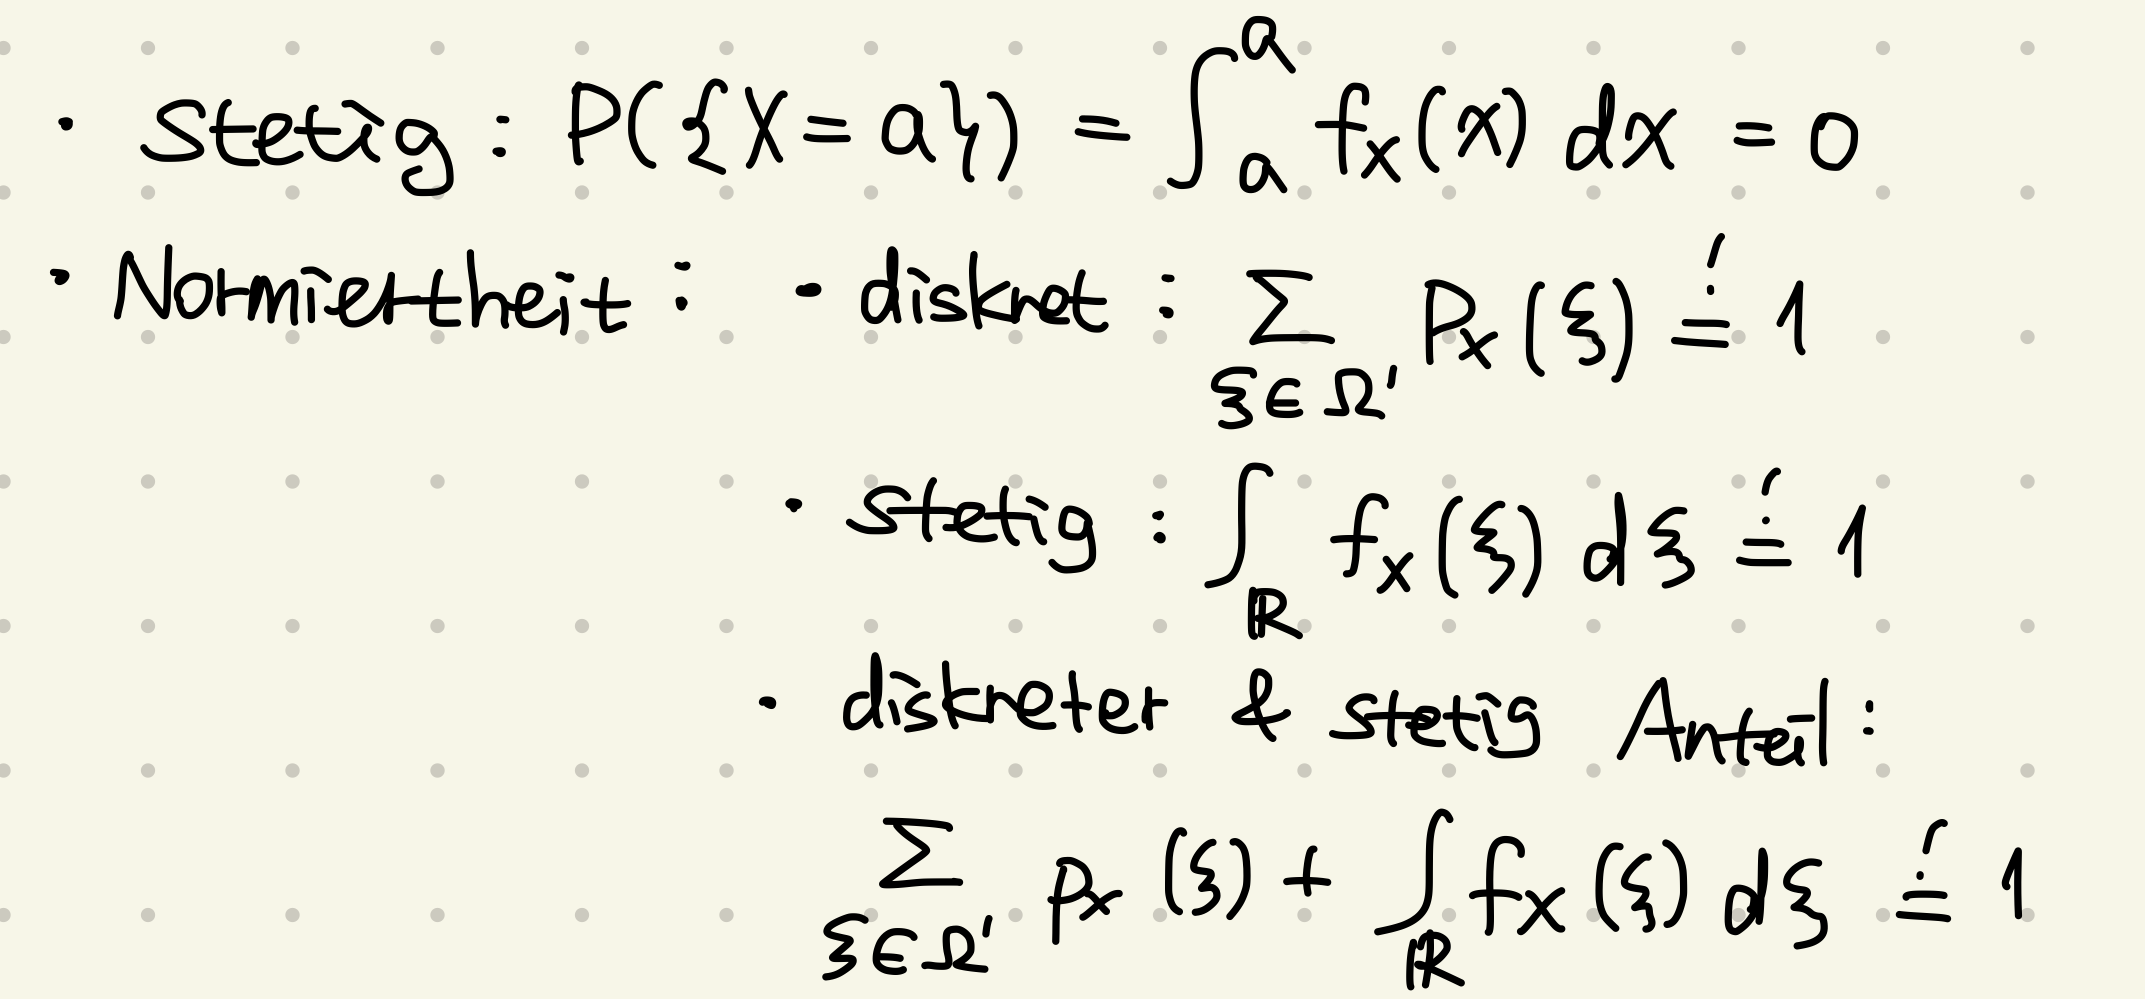 · stetig : P({X = a}) = ∫_a^a f_X(x) dx = 0
· Normiertheit : · diskret : ∑_{ξ ∈ Ω'} P_X(ξ) =! 1
· stetig : ∫_ℝ f_X(ξ) dξ =! 1
· diskreter & stetig Anteil :
∑_{ξ ∈ Ω'} p_X(ξ) + ∫_ℝ f_X(ξ) dξ =! 1